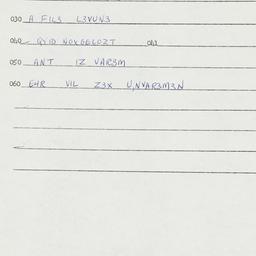 030 A FIL3 L3VUN3
040 QVID NOVGELOZT 041
050 ANT IZ VAR3M
060 E4R VIL Z3X U,NVAR3M3N